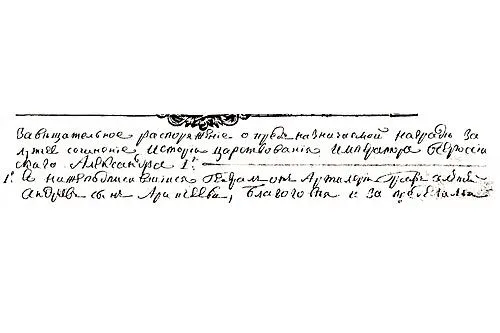 Завѣщательное распоряженіе о предназначаемой наградѣ за
лутчее сочиненіе Исторіи царствованія Императора Всероссій
скаго Александра 1го
1е Я нижеподписавшійся Генералъ отъ Артилеріи Графъ Алексѣй
Андреевъ сынъ Аракчеевъ, Благоговѣя и за пределами